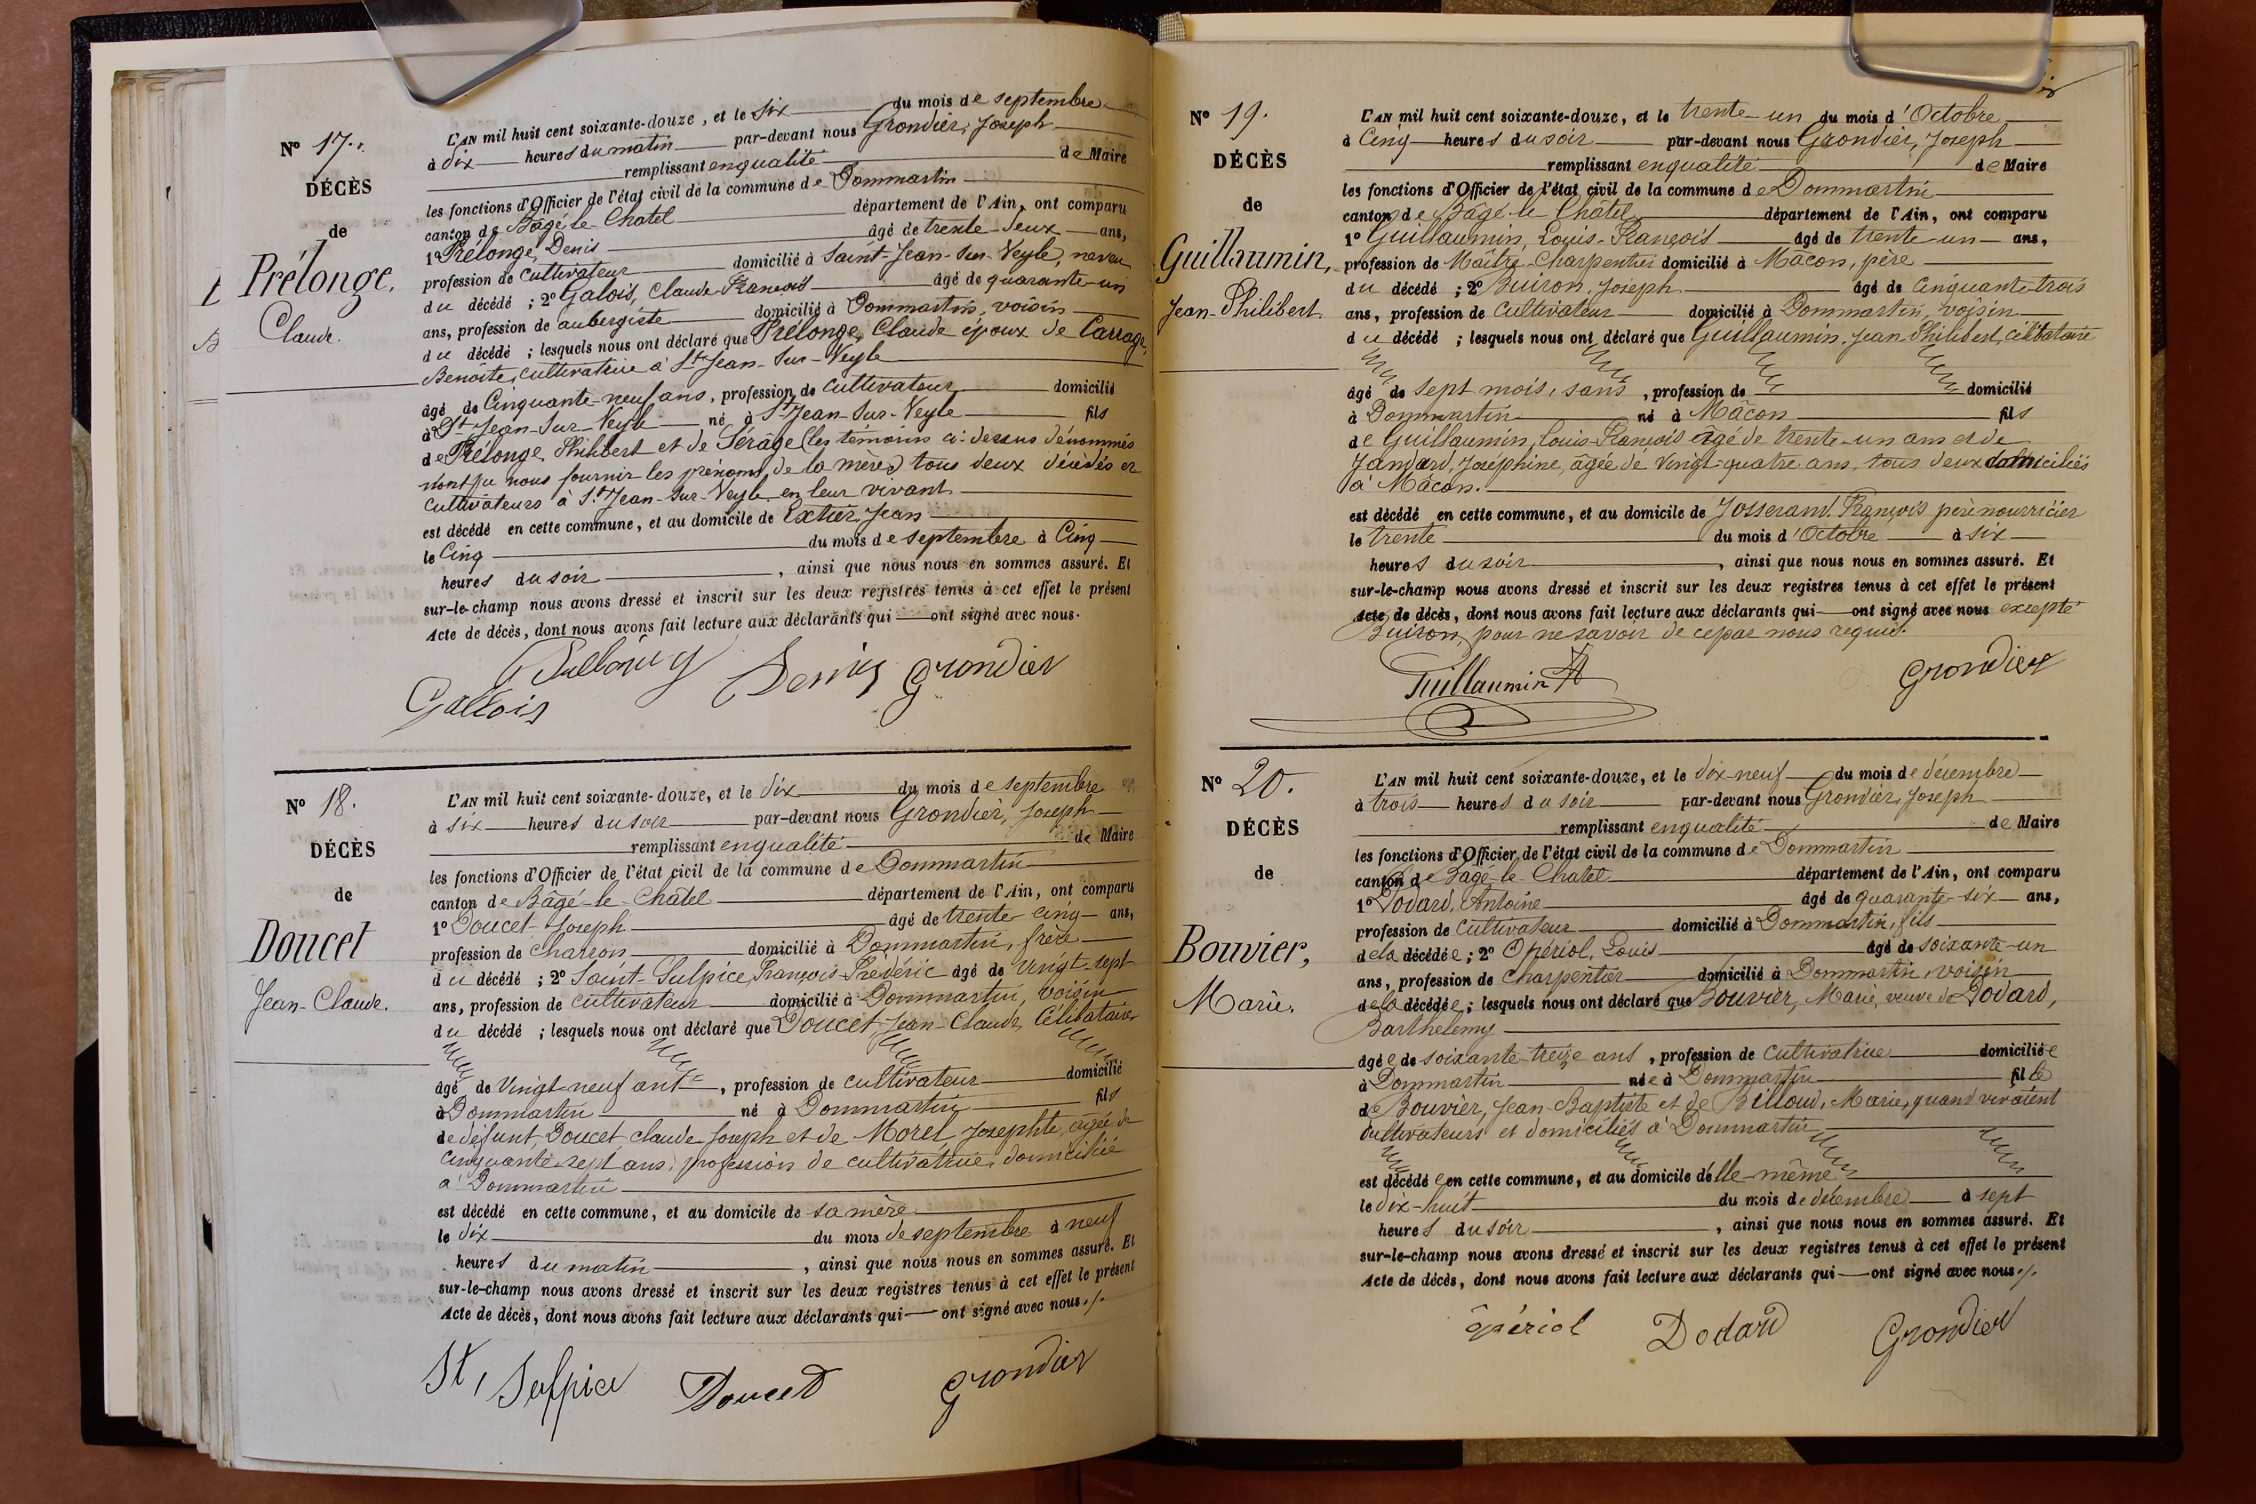 Nº 17.
DÉCÈS
de
Prélonge,
Claude.
L'AN mil huit cent soixante-douze, et le six du mois de septembre
à dix heures du matin par-devant nous Grondier, Joseph
remplissant en qualité de Maire
les fonctions d'Officier de l'état civil de la commune de Dommartin
canton de Bâgé-le-Châtel département de l'Ain, ont comparu
1º Prélonge, Denis âgé de trente-deux ans,
profession de cultivateur domicilié à Saint-Jean-sur-Veyle, neveu
du décédé ; 2º Galois, Claude François âgé de quarante-un
ans, profession de aubergiste domicilié à Dommartin, voisin
du décédé ; lesquels nous ont déclaré que Prélonge, Claude époux de Carrage,
Benoite, cultivatrice à St Jean-sur-Veyle
âgé de Cinquante-neuf ans, profession de cultivateur domicilié
à St Jean-sur-Veyle né à St Jean-sur-Veyle fils
de Prélonge Philibert et de Sérâge (les témoins ci-dessus dénommés
n'ont pu nous fournir les prénoms de la mère) tous deux décédés et
cultivateurs à St Jean-sur-Veyle en leur vivant
est décédé en cette commune, et au domicile de Extier, Jean
le Cinq du mois de septembre à Cinq
heures du soir , ainsi que nous nous en sommes assuré. Et
sur-le-champ nous avons dressé et inscrit sur les deux registres tenus à cet effet le présent
Acte de décès, dont nous avons fait lecture aux déclarants qui ont signé avec nous.
Denis Grondier
Gallois
Nº 18.
DÉCÈS
de
Doucet
Jean-Claude.
L'AN mil huit cent soixante-douze, et le dix du mois de septembre
à six heures du soir par-devant nous Grondier, Joseph
remplissant en qualité de Maire
les fonctions d'Officier de l'état civil de la commune de Dommartin
canton de Bâgé-le-Châtel département de l'Ain, ont comparu
1º Doucet Joseph âgé de trente-cinq ans,
profession de charron domicilié à Dommartin, frère
du décédé ; 2º Saint-Sulpice, François Frédéric âgé de vingt-sept
ans, profession de cultivateur domicilié à Dommartin, voisin
du décédé ; lesquels nous ont déclaré que Doucet Jean-Claude, Célibataire
âgé de Vingt-neuf ans , profession de cultivateur domicilié
à Dommartin né à Dommartin fils
de défunt, Doucet Claude Joseph et de Morel, Josephte, âgée de
cinquante-sept ans, profession de cultivatrice, domiciliée
à Dommartin
est décédé en cette commune, et au domicile de sa mère
le dix du mois de septembre à neuf
heures du matin , ainsi que nous nous en sommes assuré. Et
sur-le-champ nous avons dressé et inscrit sur les deux registres tenus à cet effet le présent
Acte de décès, dont nous avons fait lecture aux déclarants qui ont signé avec nous ./.
St, Sulpice Doucet Grondier
Nº 19.
DÉCÈS
de
Guillaumin,
Jean-Philibert.
L'AN mil huit cent soixante-douze, et le trente-un du mois d'Octobre
à Cinq heures du soir par-devant nous Grondier, Joseph
remplissant en qualité de Maire
les fonctions d'Officier de l'état civil de la commune de Dommartin
canton de Bâgé-le-Châtel département de l'Ain, ont comparu
1º Guillaumin, Louis-François âgé de trente-un ans,
profession de Maître-Charpentier domicilié à Mâcon, père
du décédé ; 2º Buiron, Joseph âgé de Cinquante-trois
ans, profession de Cultivateur domicilié à Dommartin, voisin
du décédé ; lesquels nous ont déclaré que Guillaumin, Jean Philibert, célibataire
âgé de sept mois, sans , profession de domicilié
à Dommartin né à Mâcon fils
de Guillaumin, Louis-François âgé de trente-un ans et de
Jandard, Joséphine, âgée de Vingt-quatre ans, tous deux domiciliés
à Mâcon.
est décédé en cette commune, et au domicile de Josserand, François père nourricier
le trente du mois d'Octobre à six
heures du soir , ainsi que nous nous en sommes assuré. Et
sur-le-champ nous avons dressé et inscrit sur les deux registres tenus à cet effet le présent
Acte de décès, dont nous avons fait lecture aux déclarants qui ont signé avec nous excepté
Buiron, pour ne savoir de ce par nous requis.
Guillaumin Grondier
Nº 20.
DÉCÈS
de
Bouvier,
Marie.
L'AN mil huit cent soixante-douze, et le dix-neuf du mois de décembre
à trois heures du soir par-devant nous Grondier, Joseph
remplissant en qualité de Maire
les fonctions d'Officier de l'état civil de la commune de Dommartin
canton de Bâgé-le-Châtel département de l'Ain, ont comparu
1º Dodard, Antoine âgé de quarante-six ans,
profession de cultivateur domicilié à Dommartin, fils
de la décédée ; 2º Opériol, Louis âgé de soixante-un
ans, profession de charpentier domicilié à Dommartin, voisin
de la décédée ; lesquels nous ont déclaré que Bouvier, Marie, veuve de Dodard,
Barthelemy
âgée de soixante-treize ans , profession de cultivatrice domiciliée
à Dommartin née à Dommartin fille
de Bouvier, Jean-Baptiste et de Billoud, Marie, quand vivaient
cultivateurs et domiciliés à Dommartin
est décédée en cette commune, et au domicile d'elle-même
le dix-huit du mois de décembre à sept
heures du soir , ainsi que nous nous en sommes assuré. Et
sur-le-champ nous avons dressé et inscrit sur les deux registres tenus à cet effet le présent
Acte de décès, dont nous avons fait lecture aux déclarants qui ont signé avec nous ./.
Opériol Dodard Grondier